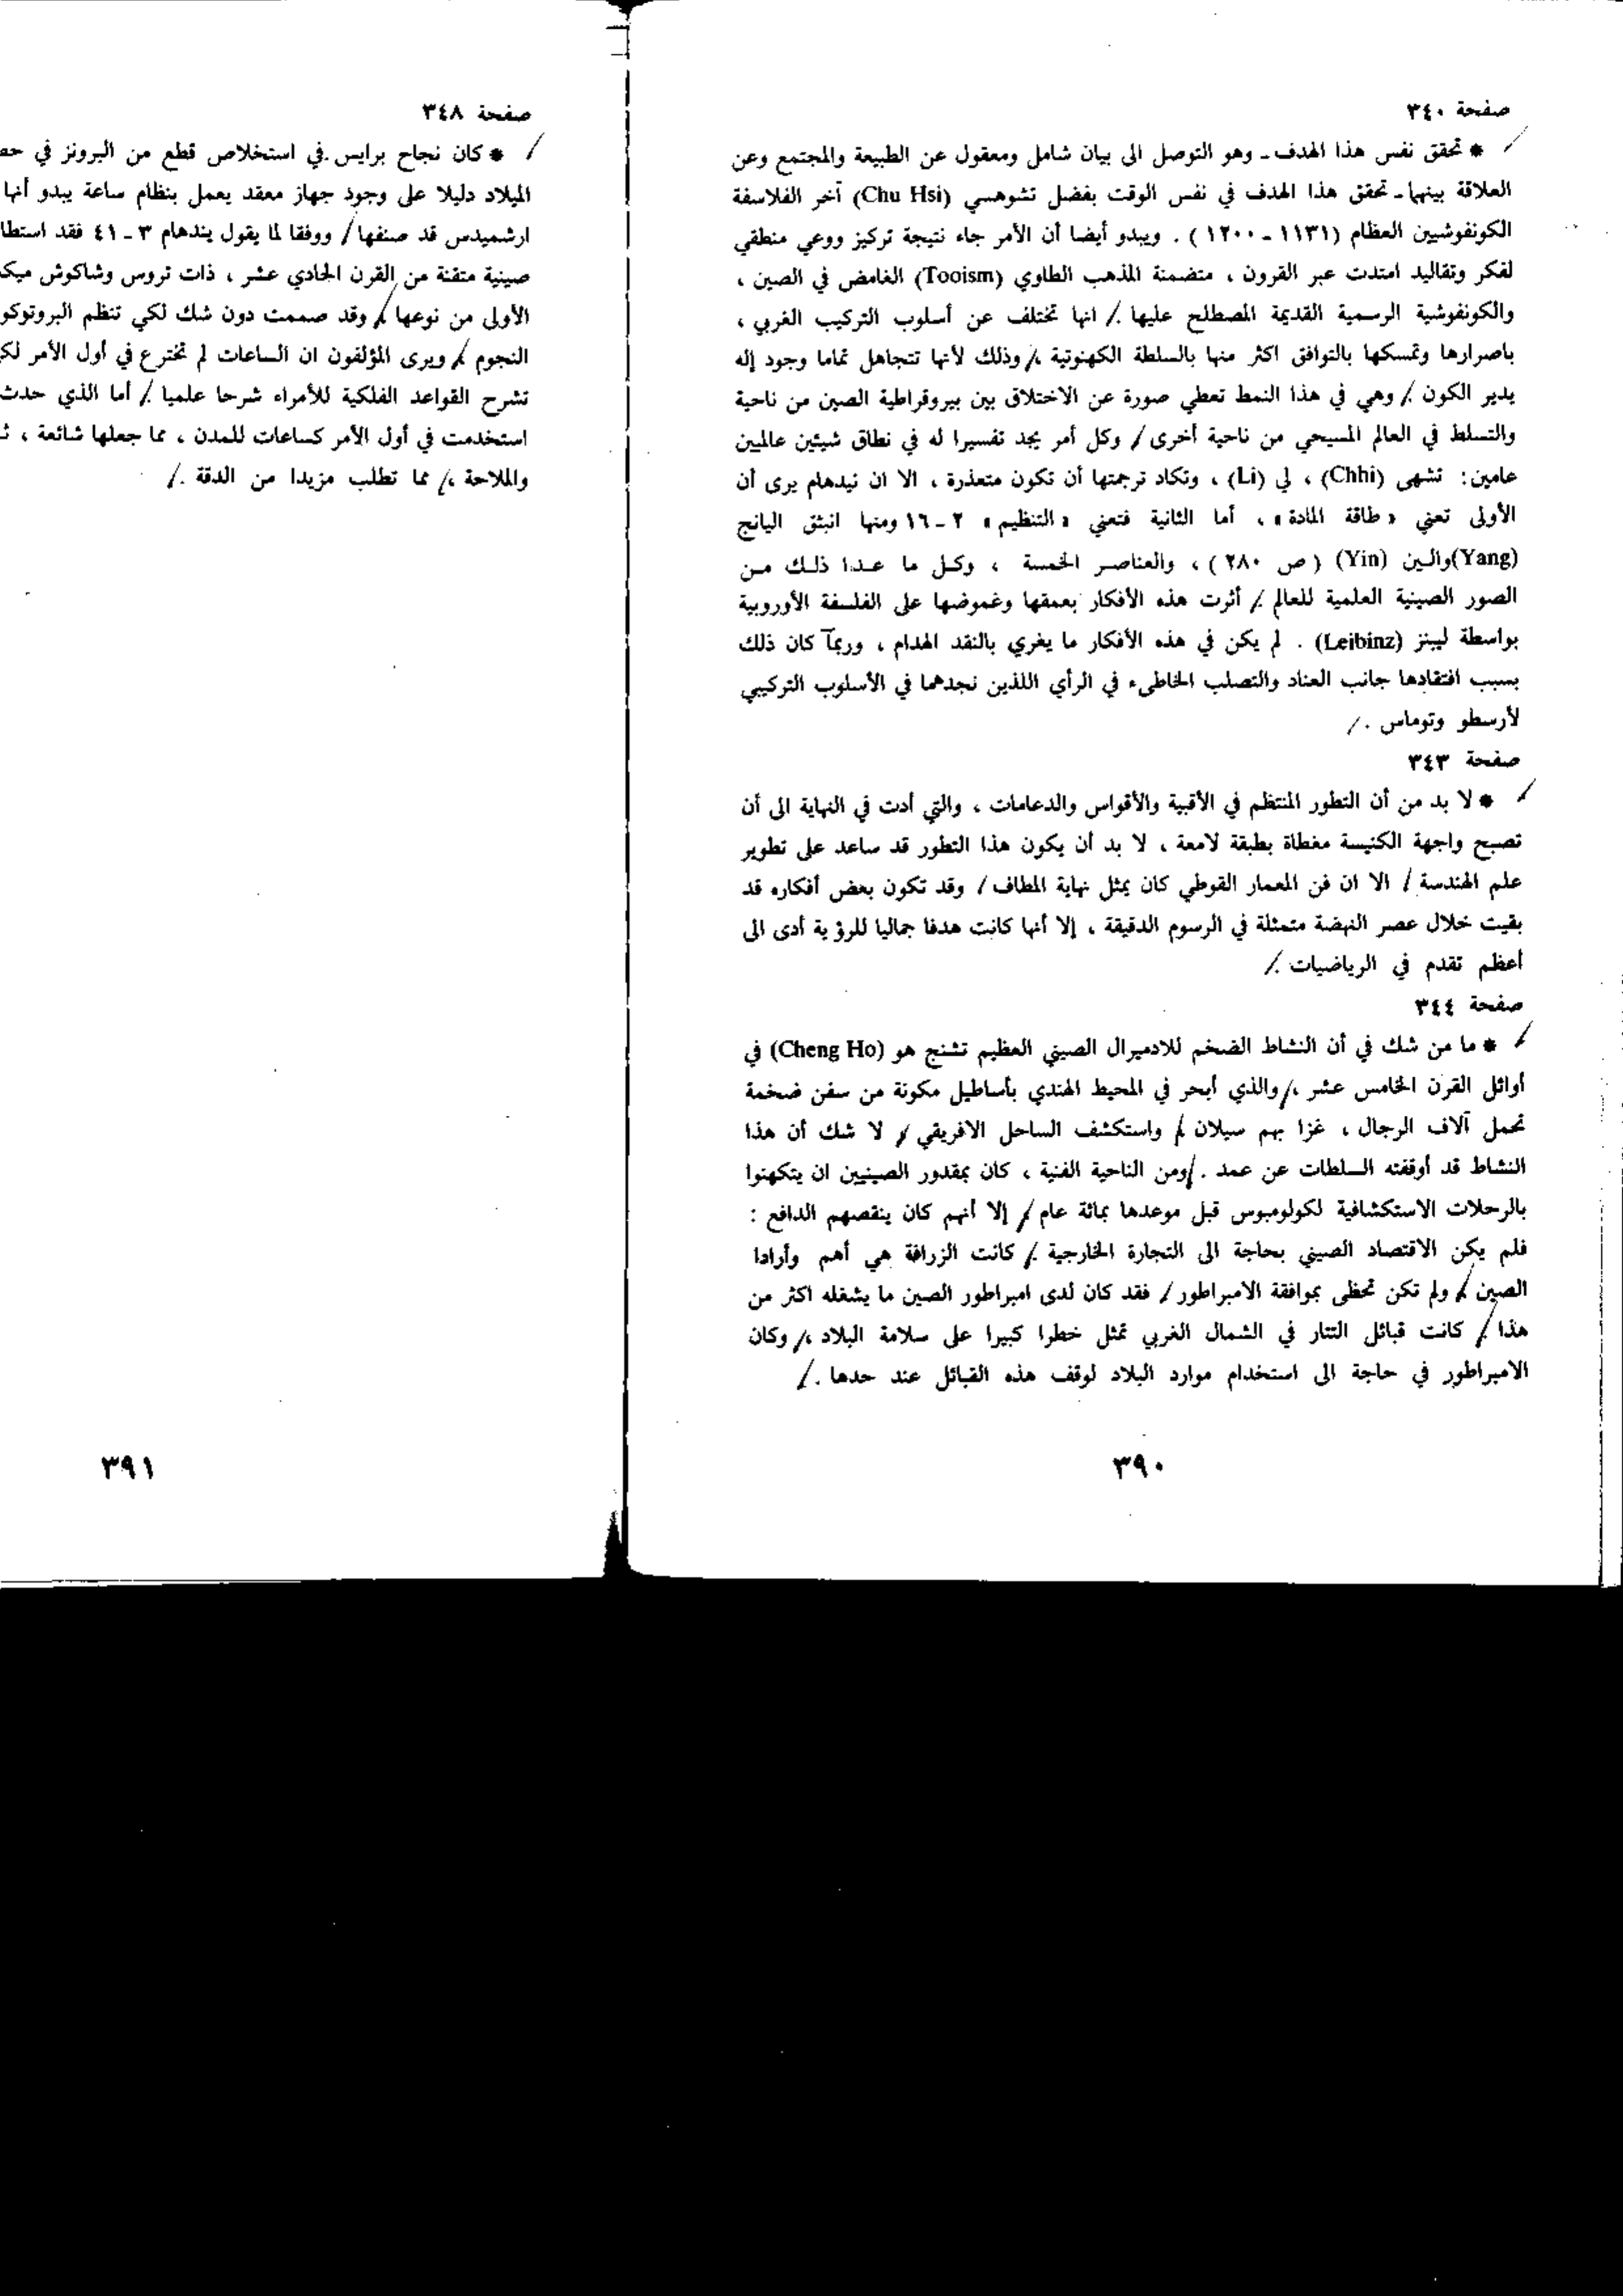 صفحة ٣٤٠
* تحقق نفس هذا الهدف ـ وهو التوصل الى بيان شامل ومعقول عن الطبيعة والمجتمع وعن
العلاقة بينهما ـ تحقق هذا الهدف في نفس الوقت بفضل تشوهسي (Chu Hsi) آخر الفلاسفة
الكونفوشيين العظام (١١٣١ ـ ١٢٠٠) . ويبدو أيضا أن الأمر جاء نتيجة تركيز ووعي منطقي
لفكر وتقاليد امتدت عبر القرون ، متضمنة المذهب الطاوي (Tooism) الغامض في الصين ،
والكونفوشية الرسمية القديمة المصطلح عليها . انها تختلف عن أسلوب التركيب الغربي ،
باصرارها وتمسكها بالتوافق اكثر منها بالسلطة الكهنوتية ، وذلك لأنها تتجاهل تماما وجود إله
يدير الكون . وهي في هذا النمط تعطي صورة عن الاختلاق بين بيروقراطية الصين من ناحية
والتسلط في العالم المسيحي من ناحية أخرى / وكل أمر يجد تفسيرا له في نطاق شيئين عالميين
عامين : تشهى (Chhi) ، لي (Li) ، وتكاد ترجمتها أن تكون متعذرة ، الا ان نيدهام يرى أن
الأولى تعني « طاقة المادة » ، أما الثانية فتعني « التنظيم » ٢ ـ ١٦ ومنها انبثق اليانج
(Yang) والين (Yin) (ص ٢٨٠) ، والعناصر الخمسة ، وكل ما عدا ذلك من
الصور الصينية العلمية للعالم . أثرت هذه الأفكار بعمقها وغموضها على الفلسفة الأوروبية
بواسطة ليبنز (Leibinz) . لم يكن في هذه الأفكار ما يغري بالنقد الهدام ، وربما كان ذلك
بسبب افتقادها جانب العناد والتصلب الخاطىء في الرأي اللذين نجدهما في الأسلوب التركيبي
لأرسطو وتوماس .
صفحة ٣٤٣
* لا بد من أن التطور المنتظم في الأقبية والأقواس والدعامات ، والتي أدت في النهاية الى أن
تصبح واجهة الكنيسة مغطاة بطبقة لامعة ، لا بد أن يكون هذا التطور قد ساعد على تطوير
علم الهندسة / الا ان فن المعمار القوطي كان يمثل نهاية المطاف / وقد تكون بعض أفكاره قد
بقيت خلال عصر النهضة متمثلة في الرسوم الدقيقة ، إلا أنها كانت هدفا جماليا للرؤية أدى الى
أعظم تقدم في الرياضيات .
صفحة ٣٤٤
* ما من شك في أن النشاط الضخم للادميرال الصيني العظيم تشنج هو (Cheng Ho) في
أوائل القرن الخامس عشر ، والذي أبحر في المحيط الهندي بأساطيل مكونة من سفن ضخمة
تحمل آلاف الرجال ، غزا بهم سيلان ، واستكشف الساحل الافريقي ، لا شك أن هذا
النشاط قد أوقفته السلطات عن عمد . ومن الناحية الفنية ، كان بمقدور الصينيين ان يتكهنوا
بالرحلات الاستكشافية لكولومبوس قبل موعدها بمائة عام ، إلا أنهم كان ينقصهم الدافع :
فلم يكن الاقتصاد الصيني بحاجة الى التجارة الخارجية . كانت الزرافة هي أهم وأرادا
الصين ، ولم تكن تحظى بموافقة الامبراطور / فقد كان لدى امبراطور الصين ما يشغله اكثر من
هذا . كانت قبائل التتار في الشمال الغربي تمثل خطرا كبيرا على سلامة البلاد ، وكان
الامبراطور في حاجة الى استخدام موارد البلاد لوقف هذه القبائل عند حدها .
٣٩٠
صفحة ٣٤٨
* كان نجاح برايس في استخلاص قطع من البرونز في حط
الميلاد دليلا على وجود جهاز معقد يعمل بنظام ساعة يبدو أنها
ارشميدس قد صنفها / ووفقا لما يقول يندهام ٣ ـ ٤١ فقد استطا
صينية متقنة من القرن الحادي عشر ، ذات تروس وشاكوش ميك
الأولى من نوعها ، وقد صممت دون شك لكي تنظم البروتوكو
النجوم ، ويرى المؤلفون ان الساعات لم تخترع في أول الأمر لك
تشرح القواعد الفلكية للأمراء شرحا علميا . أما الذي حدث
استخدمت في أول الأمر كساعات للمدن ، مما جعلها شائعة ، ث
والملاحة ، مما تطلب مزيدا من الدقة .
٣٩١